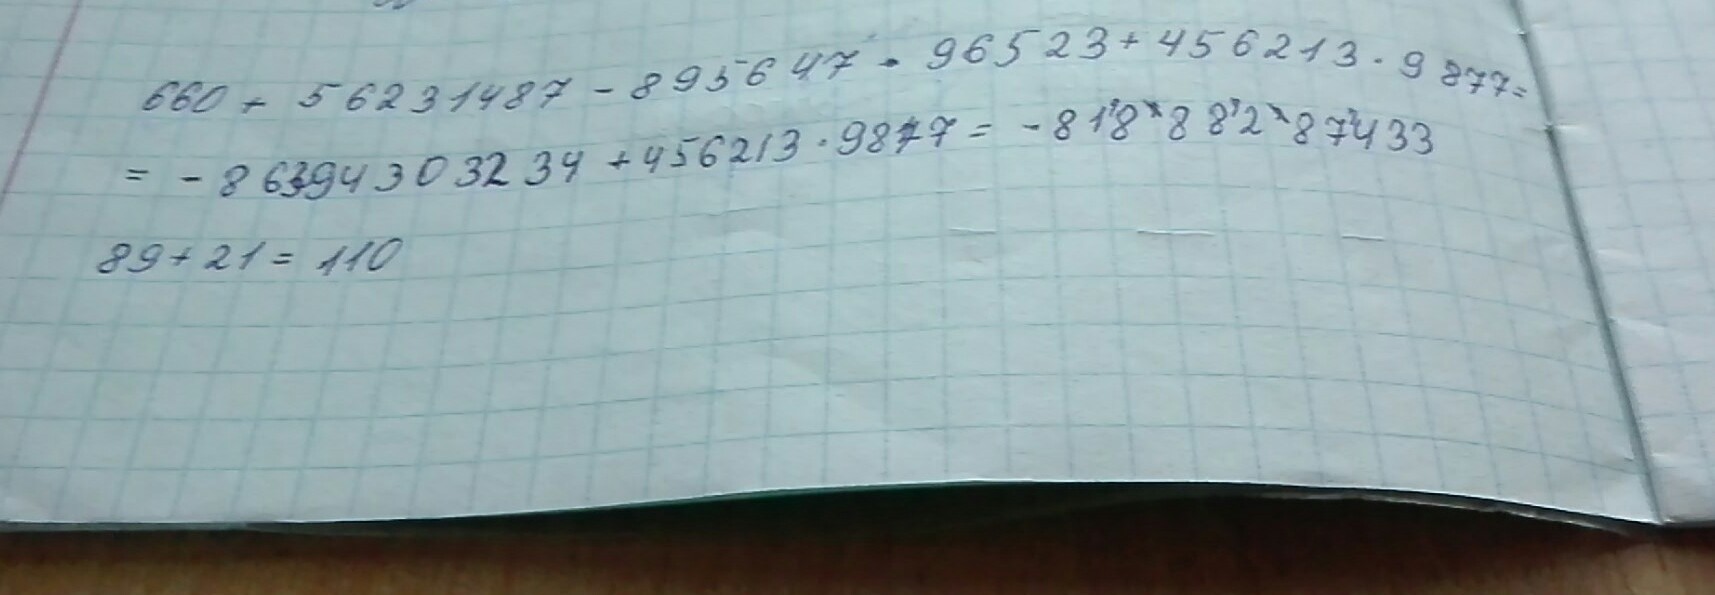 660 + 56231487 - 895647 · 96523 + 456213 · 9877 =
= - 86394303234 + 456213 · 9877 = - 81888287433
89 + 21 = 110